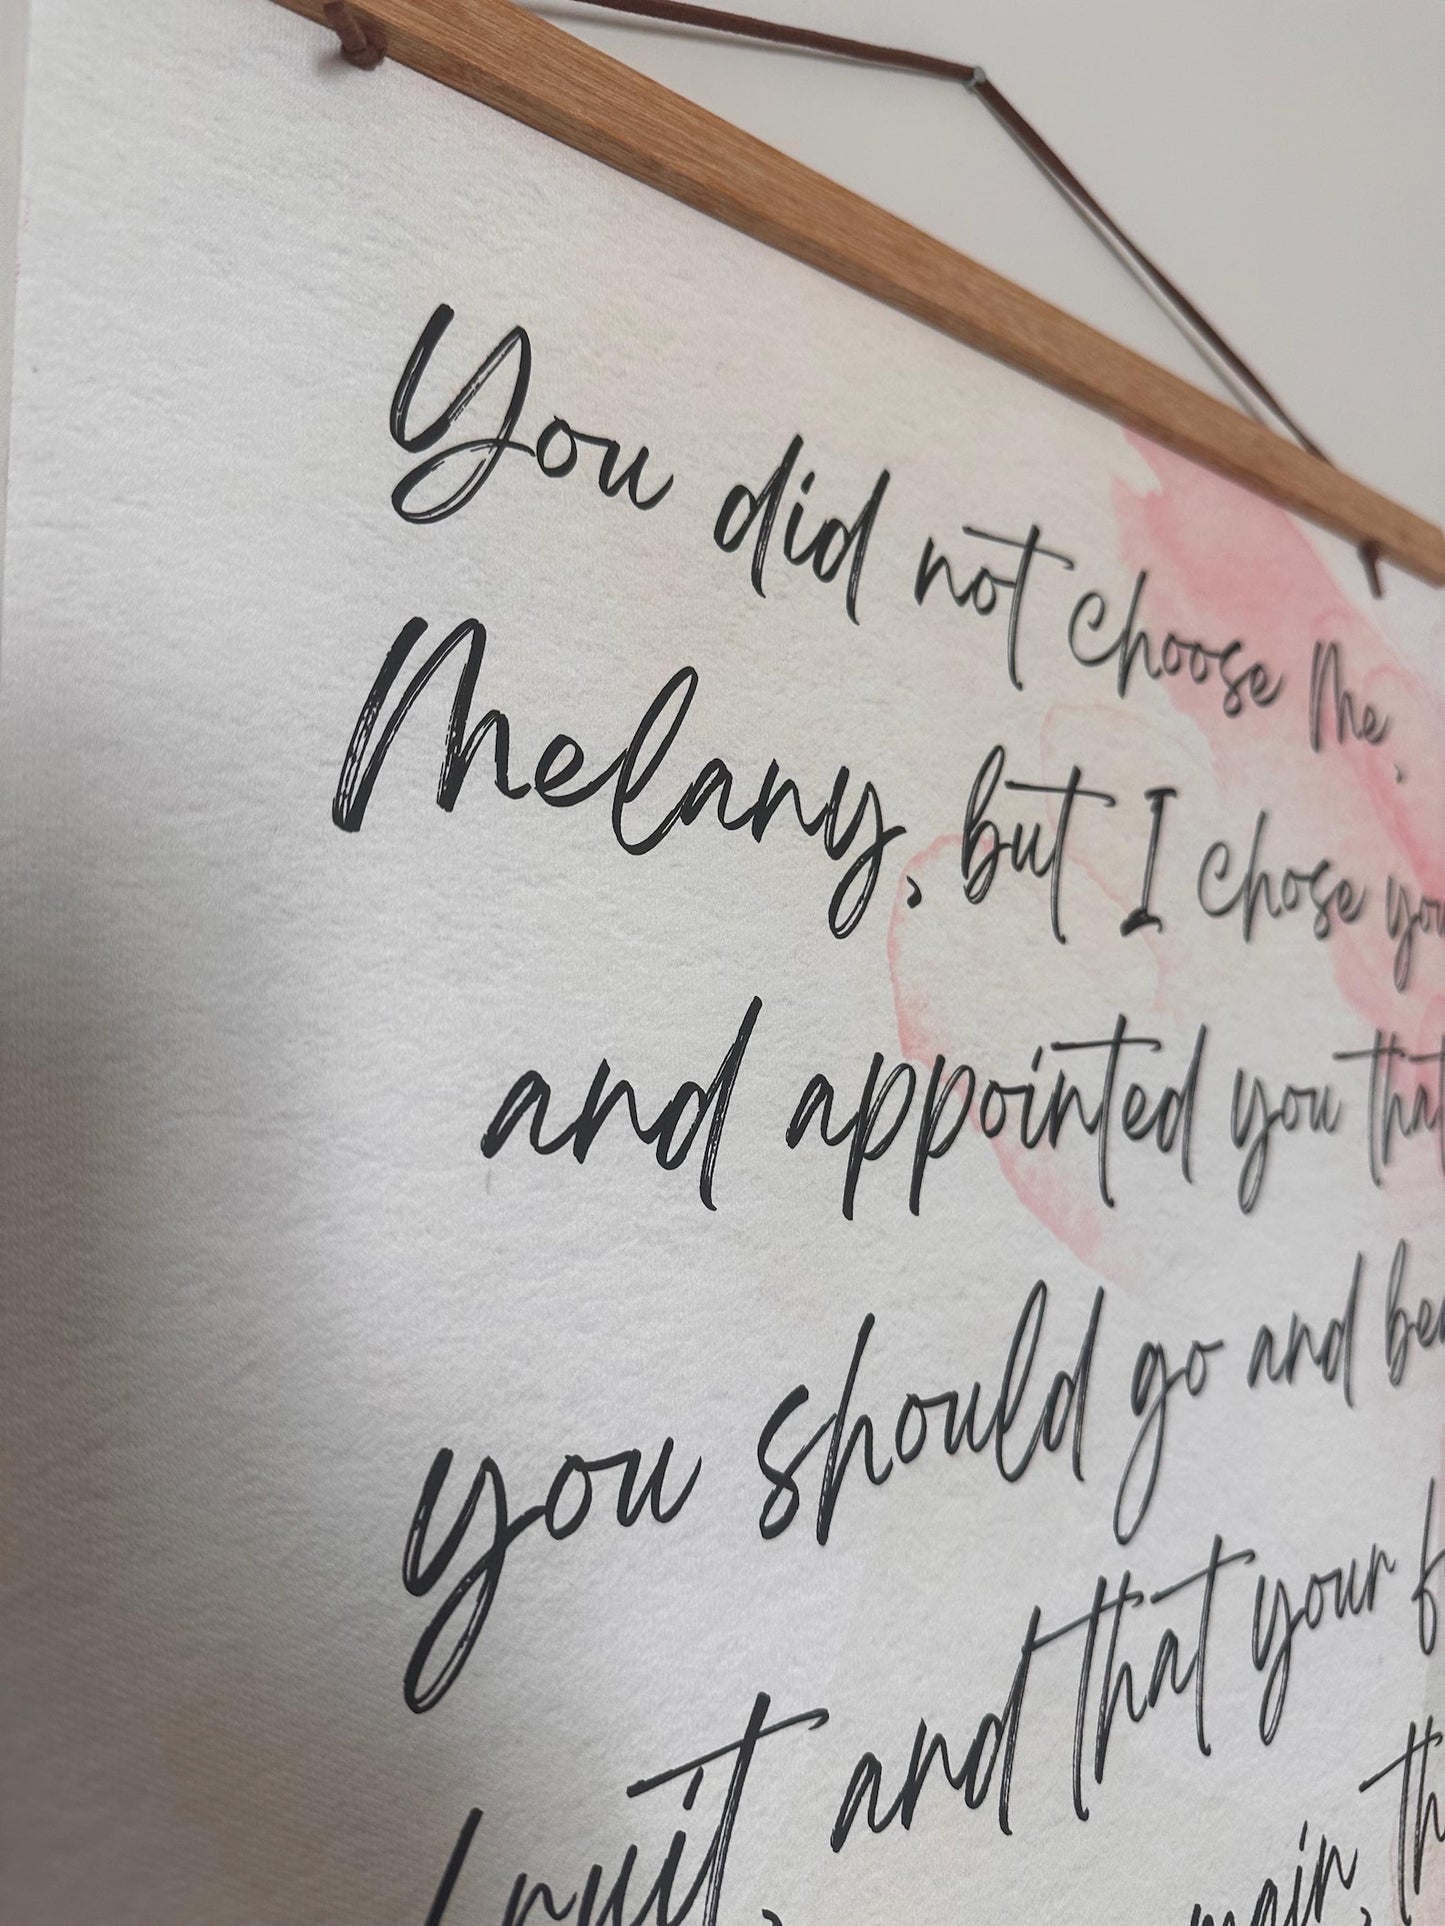 You did not choose Me,
Melany, but I chose you
and appointed you that
you should go and
fruit, and that your